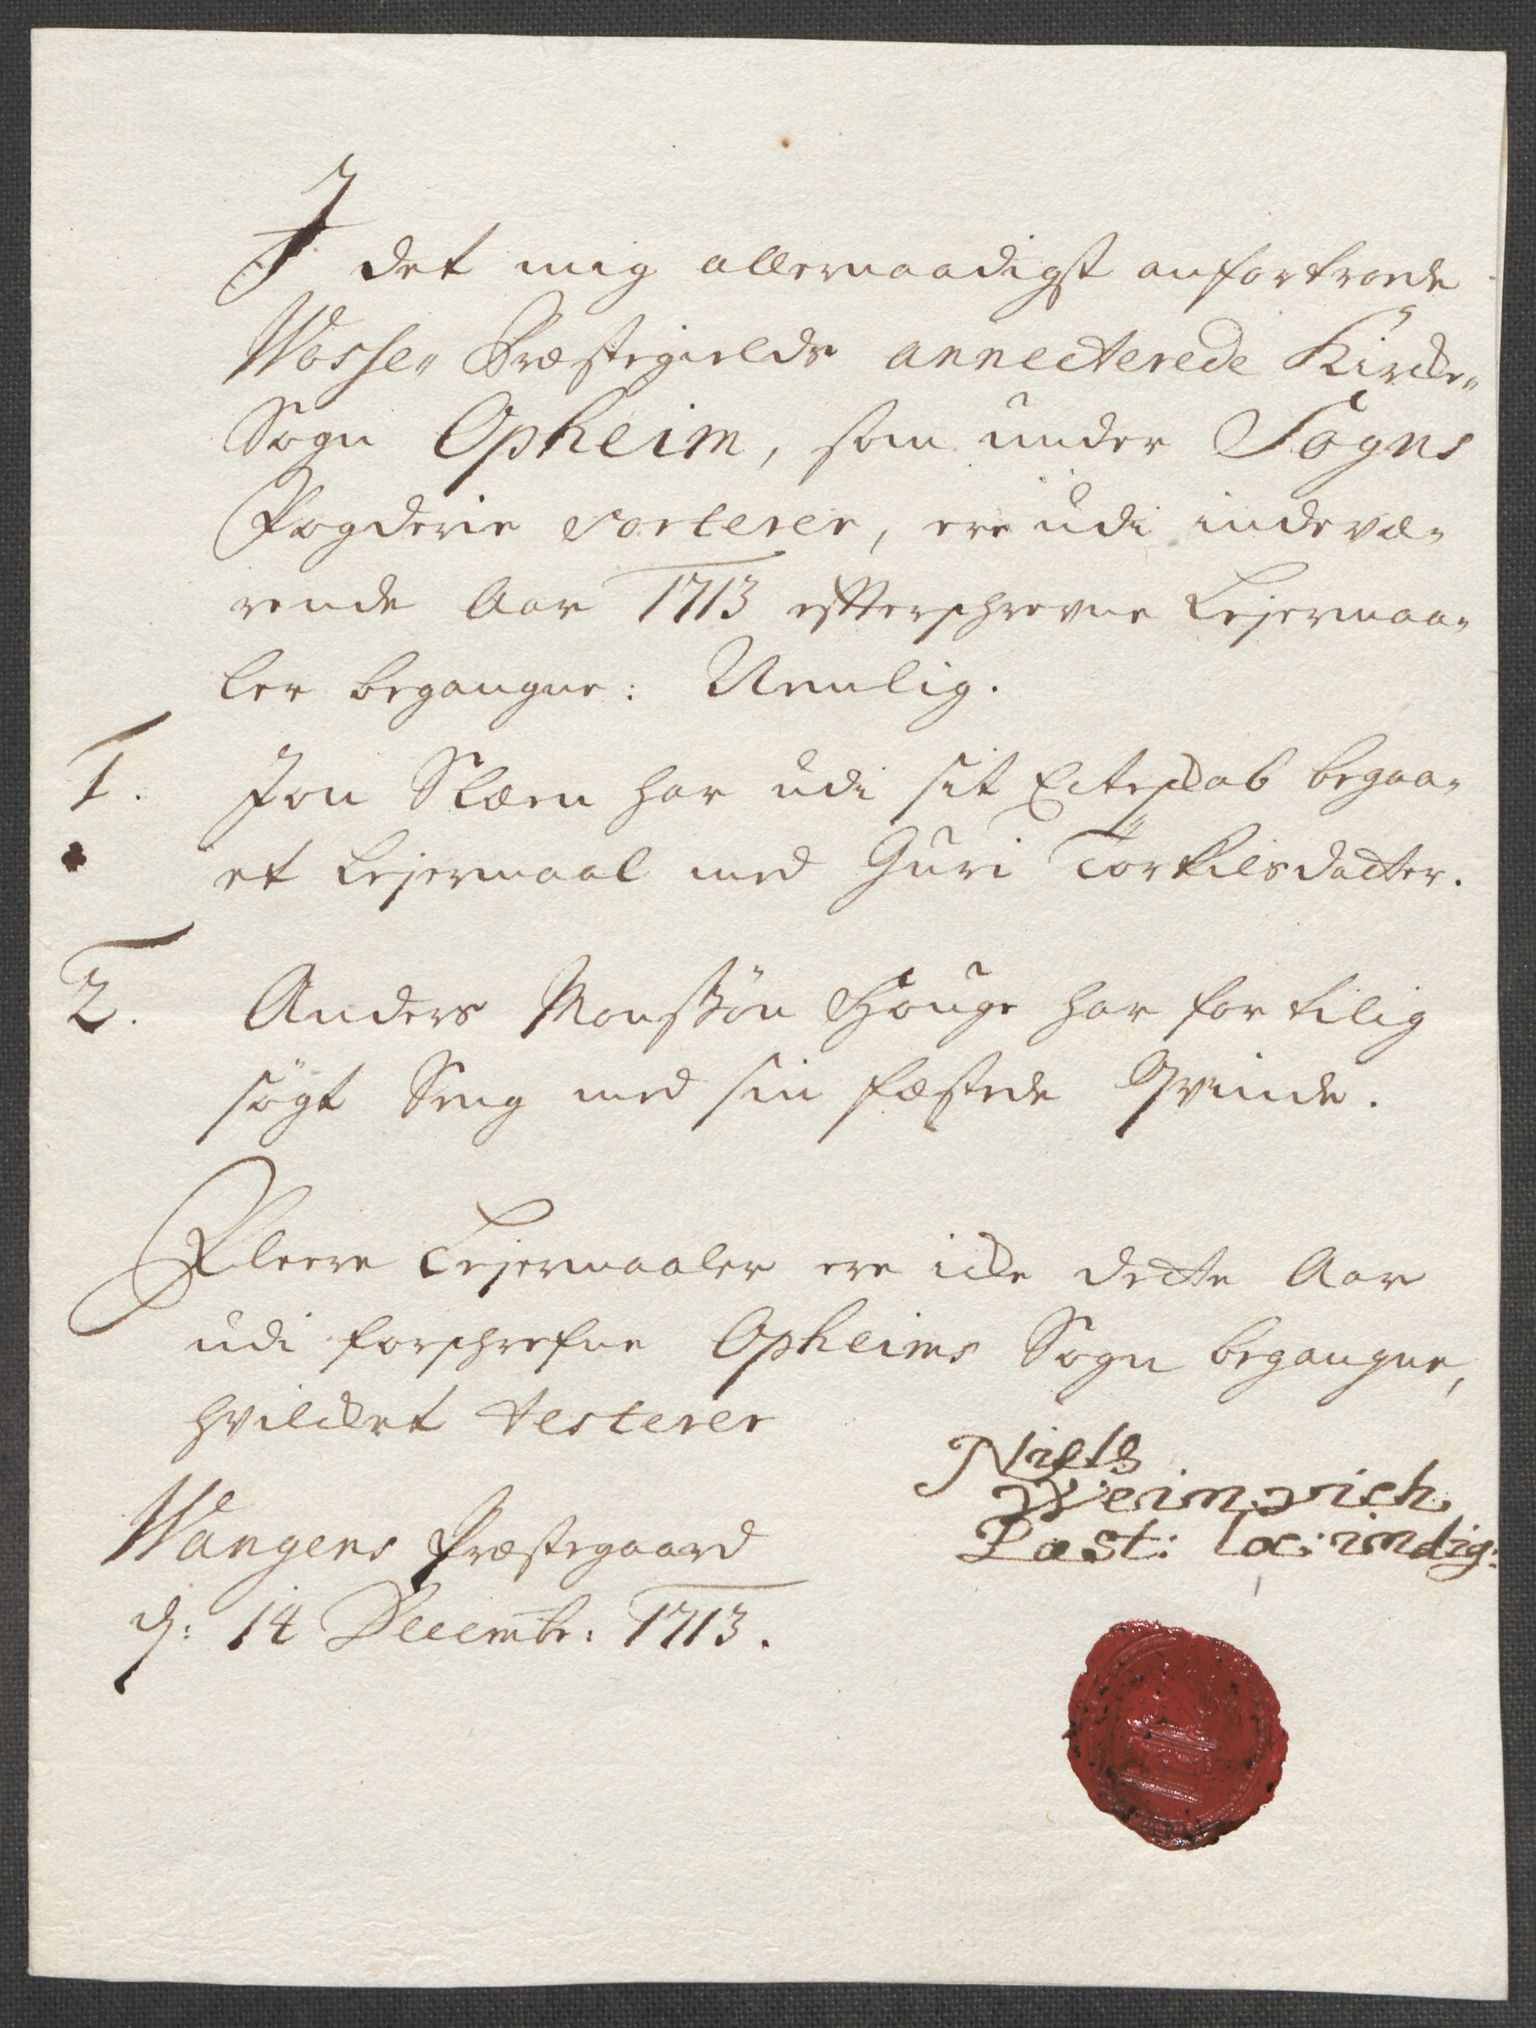 I det mig allernaadigst anfortroede
Wosse„ Præstegields annecterede Kircke„
Sogn Opheim, som under Sogns
Fogderie sorterer, ere udi indevæ„
rende Aar 1713 efterschrevne Lejermaa„
ler begangne: Nemlig.
1. Jon Slæen har udi sit Ecteskab begaa„
et Lejermaal med Guri Törkilsdatter.
2. Anders Monssön Houge har for tilig
sögt Seng med sin fæstede Qvinde.
Fleere Lejermaaler ere icke dette Aar
udi forschrefne Opheims Sogn begangne,
hvilcket testerer
Niels
Weinwich
Past: loc: indig:
Wangens Præstegaard
d: 14 Decembr: 1713.